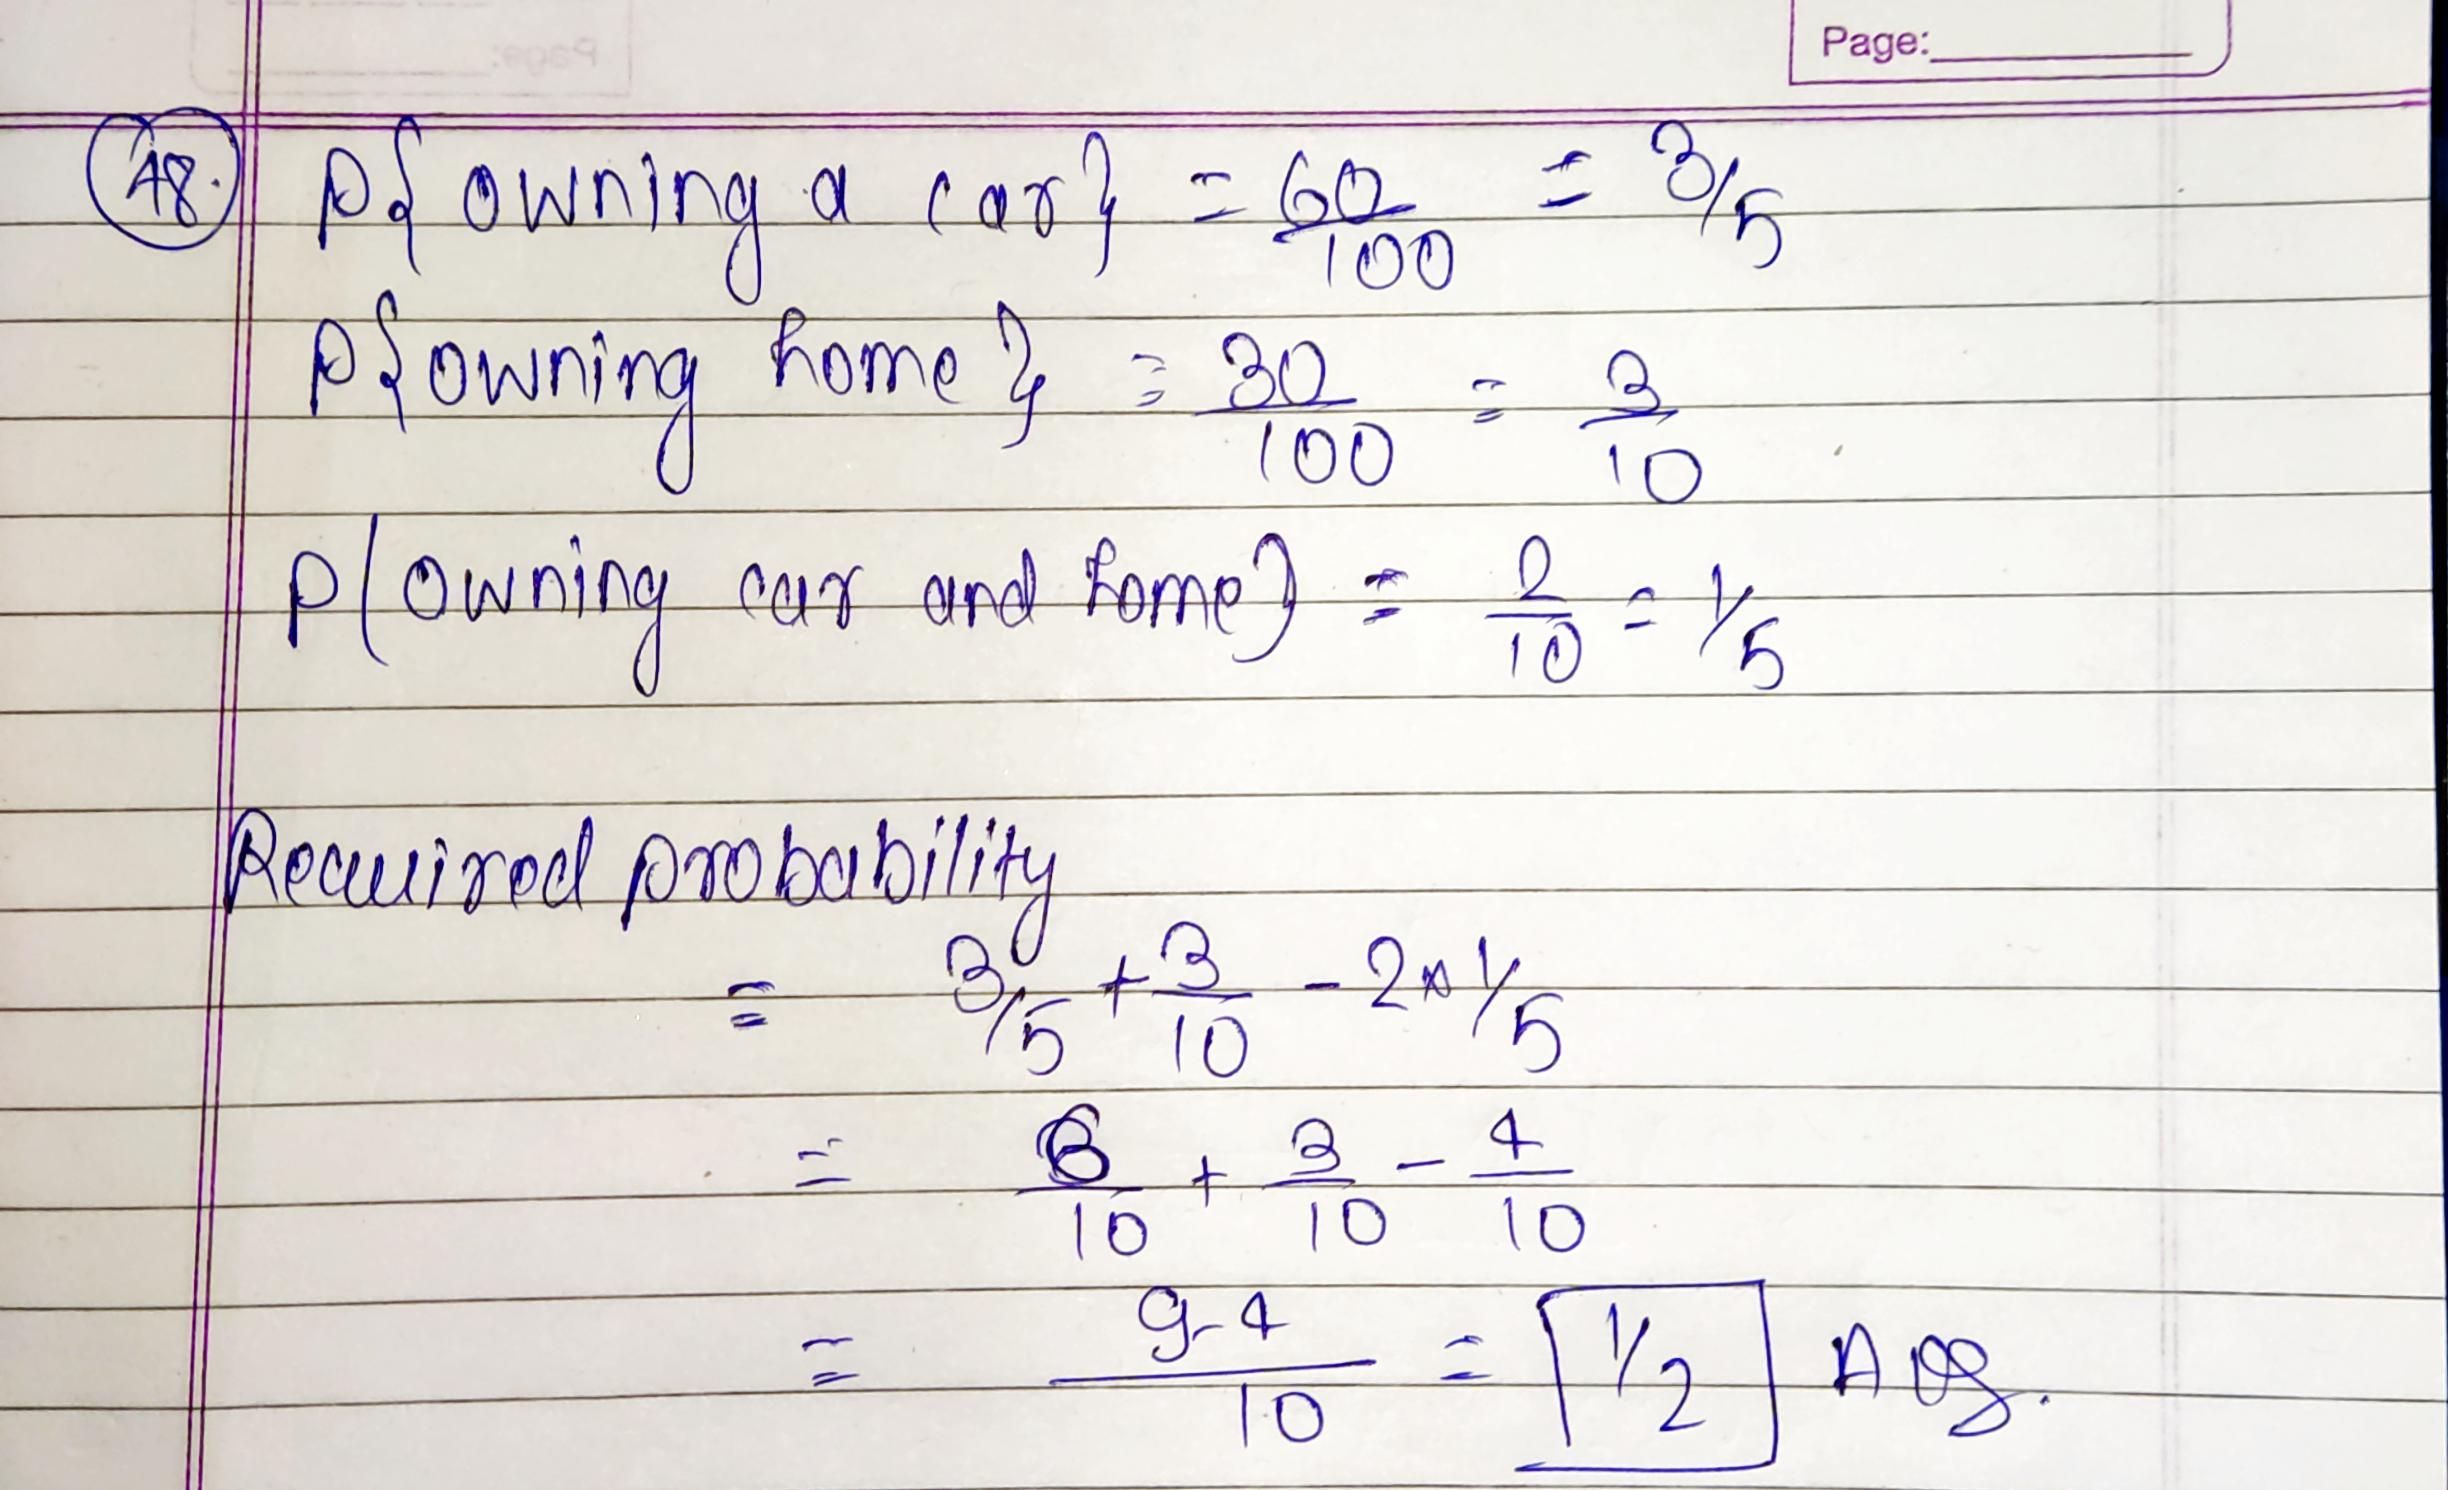 Page:
48. P{owning a car} = 60/100 = 3/5
P{owning home} = 30/100 = 3/10
P(owning car and home) = 2/10 = 1/5
Required probability
= 3/5 + 3/10 - 2×1/5
= 6/10 + 3/10 - 4/10
= 9-4/10 = 1/2 Ans.